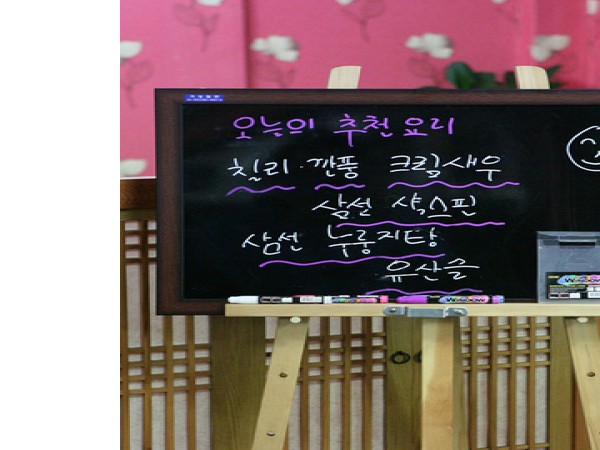 오늘의 추천 요리
칠리·깐풍 크림새우
삼선 샥스핀
삼선 누룽지탕
유산슬